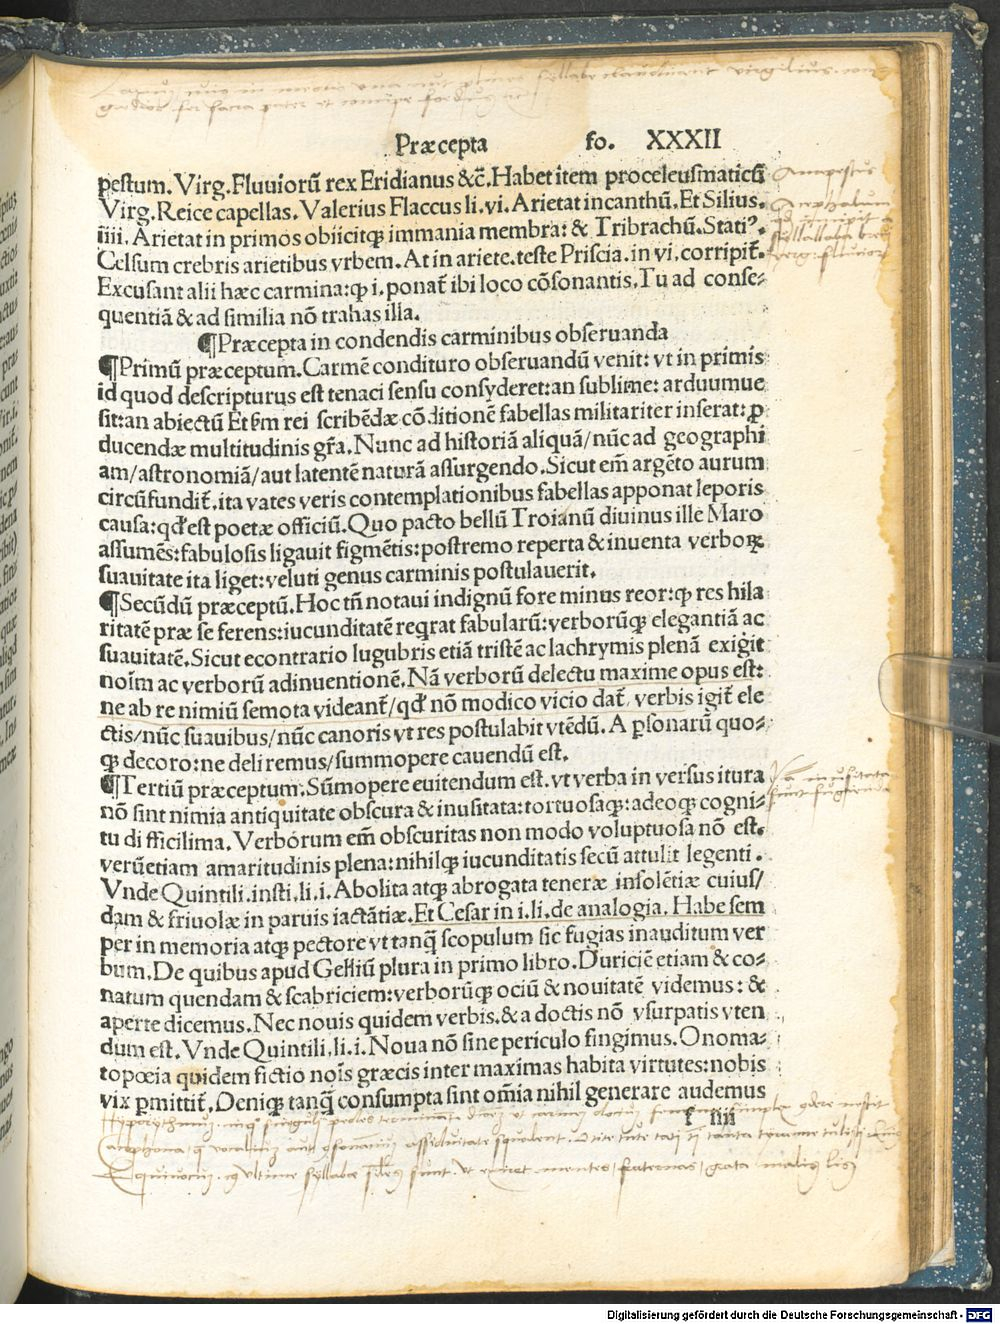 Præcepta fo. XXXII
pestum. Virg. Fluuiorū rex Eridianus &c̄. Habet item proceleusmaticū
Virg. Reice capellas. Valerius Flaccus li. vi. Arietat incanthū. Et Silius.
iiii. Arietat in primos obiicitqꝫ immania membra: & Tribrachū. Statiꝰ.
Celsum crebris arietibus vrbem. At in ariete. teste Priscia. in vi. corripit̄.
Excusant alii hæc carmina: ꝙ i. ponat̄ ibi loco cōsonantis. Tu ad conse-
quentiā & ad similia nō trahas illa.
¶Præcepta in condendis carminibus obseruanda
¶Primū præceptum. Carmē condituro obseruandū venit: vt in primis
id quod descripturus est tenaci sensu consyderet: an sublime: arduumue
sit: an abiectū Et ẜm rei scribēdæ cōditionē fabellas militariter inserat: ꝓ
ducendæ multitudinis gr̄a. Nunc ad historiā aliquā/ nūc ad geographi
am/ astronomiā/ aut latentē naturā assurgendo. Sicut em̄ argēto aurum
circūfundit̄. ita vates veris contemplationibus fabellas apponat leporis
causa: qd̄ est poetæ officiū. Quo pacto bellū Troianū diuinus ille Maro
assumēs: fabulosis ligauit figmētis: postremo reperta & inuenta verboꝝ
suauitate ita liget: veluti genus carminis postulauerit.
¶Secūdū præceptū. Hoc tn̄ notaui indignū fore minus reor: ꝙ res hila
ritatē præ se ferens: iucunditatē reqrat fabularū: verborūqꝫ elegantiā ac
suauitatē. Sicut econtrario lugubris etiā tristē ac lachrymis plenā exigit
noīm ac verborū adinuentionē. Nā verborū delectu maxime opus est:
ne ab re nimiū semota videant̄/ qd̄ nō modico vicio dat̄. verbis igit̄ ele
ctis/ nūc suauibus/ nūc canoris vt res postulabit vtēdū. A ꝑsonarū quo-
qꝫ decoro: ne deliremus/ summopere cauendū est.
¶Tertiū præceptum. Sūmopere euitendum est. vt verba in versus itura
nō sint nimia antiquitate obscura & inusitata: tortuosaqꝫ: adeoqꝫ cogni-
tu difficilima. Verborum em̄ obscuritas non modo voluptuosa nō est.
verūetiam amaritudinis plena: nihilqꝫ iucunditatis secū attulit legenti.
Vnde Quintili. insti. li. i. Abolita atqꝫ abrogata teneræ insolētiæ cuius/
dam & friuolæ in paruis iactātiæ. Et Cesar in i. li. de analogia. Habe sem
per in memoria atqꝫ pectore vt tanq̄ scopulum sic fugias inauditum ver
bum. De quibus apud Gelliū plura in primo libro. Duriciē etiam & co-
natum quendam & scabriciem: verborūqꝫ ociū & nouitatē videmus: &
aperte dicemus. Nec nouis quidem verbis. & a doctis nō vsurpatis vten
dum est. Vnde Quintili. li. i. Noua nō sine periculo fingimus. Onoma-
topœia quidem fictio noīs græcis inter maximas habita virtutes: nobis
vix ꝑmittit̄. Deniqꝫ tanq̄ consumpta sint om̄ia nihil generare audemus
f iiii
Anapestus
Digitalisierung gefördert durch die Deutsche Forschungsgemeinschaft - DFG